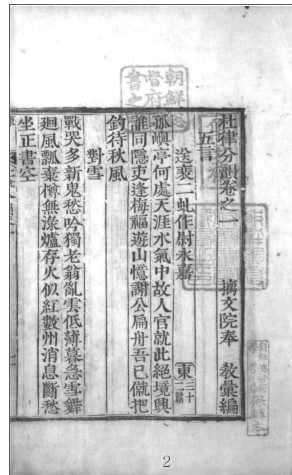 朝鮮總
督府圖
書之
杜律分韻卷之一
摛文院奉 教彙編
五言
東
送裴二虬作尉永嘉
孤嶼亭何處天涯水氣中故人官就此絕境興
誰同隱吏逢梅福遊山憶謝公扁舟吾已僦把
釣待秋風
對雪
戰哭多新鬼愁吟獨老翁亂雲低薄暮急雪舞
廻風瓢棄樽無淥爐存火似紅數州消息斷愁
坐正書空
2